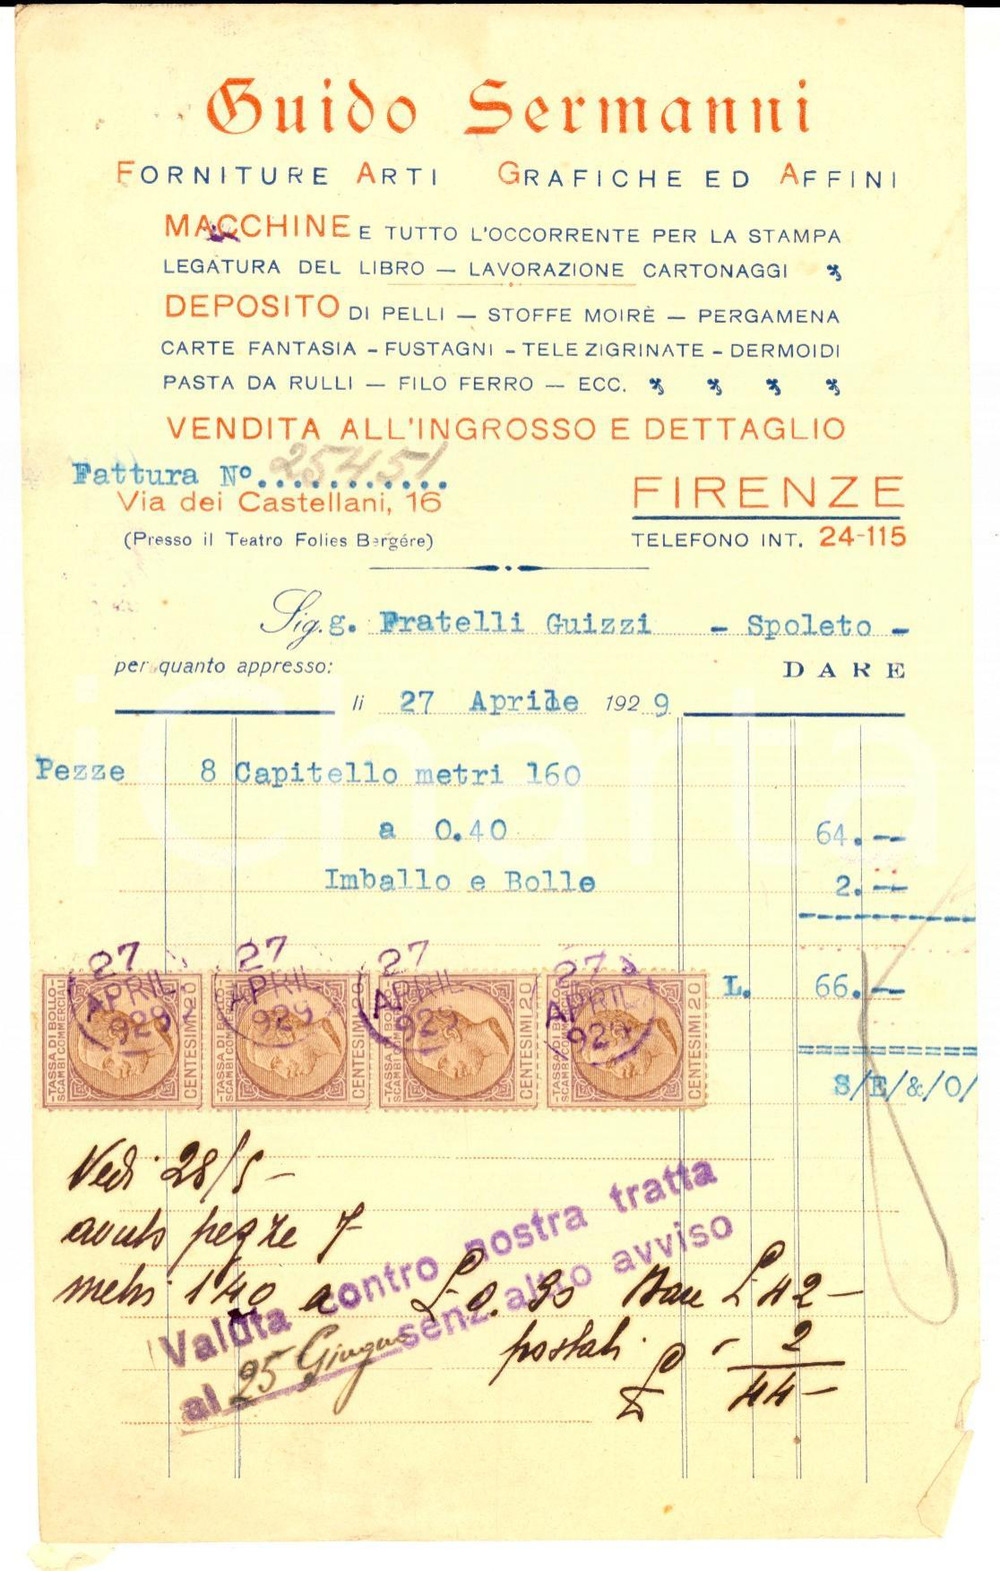 Guido Sermanni
FORNITURE ARTI GRAFICHE ED AFFINI
MACCHINE E TUTTO L'OCCORRENTE PER LA STAMPA
LEGATURA DEL LIBRO — LAVORAZIONE CARTONAGGI
DEPOSITO DI PELLI — STOFFE MOIRÈ — PERGAMENA
CARTE FANTASIA - FUSTAGNI - TELE ZIGRINATE - DERMOIDI
PASTA DA RULLI — FILO FERRO — ECC.
VENDITA ALL'INGROSSO E DETTAGLIO
Fattura N° 25451
Via dei Castellani, 16
(Presso il Teatro Folies Bergére)
FIRENZE
TELEFONO INT. 24-115
Sig.g. Fratelli Guizzi - Spoleto -
per quanto appresso:
DARE
li 27 Aprile 1929
Pezze 8 Capitello metri 160
a 0.40 64.--
Imballo e Bolle 2.--
L. 66.--
S/E/&/O/
27 APRIL 929
27 APRIL 929
27 APRIL 929
27 APRIL 929
-TASSA DI BOLLO- SCAMBI COMMERCIALI CENTESIMI 20
CENTESIMI 20
CENTESIMI 20
CENTESIMI 20
Vedi 28/5 -
avuto pezze 7
metri 140 a £ 0.30 Dare £ 42 -
postali - 2
£ 44 -
Valuta contro nostra tratta
al 25 Giugno senz'altro avviso
iCharta